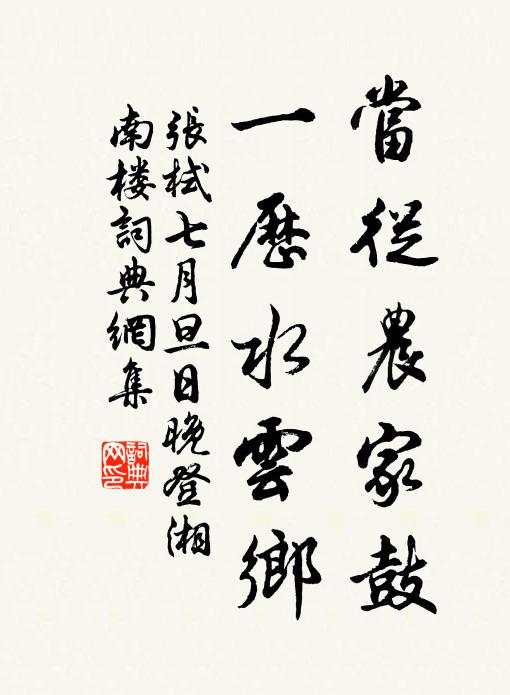 當從農家鼓
一歷水雲鄉
張栻七月旦日晚登湘
南楼詞典網集
詞典
网印